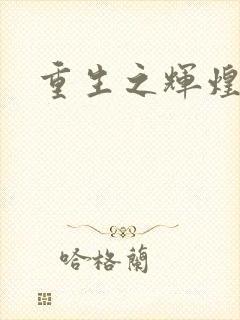 重生之輝煌
哈格蘭